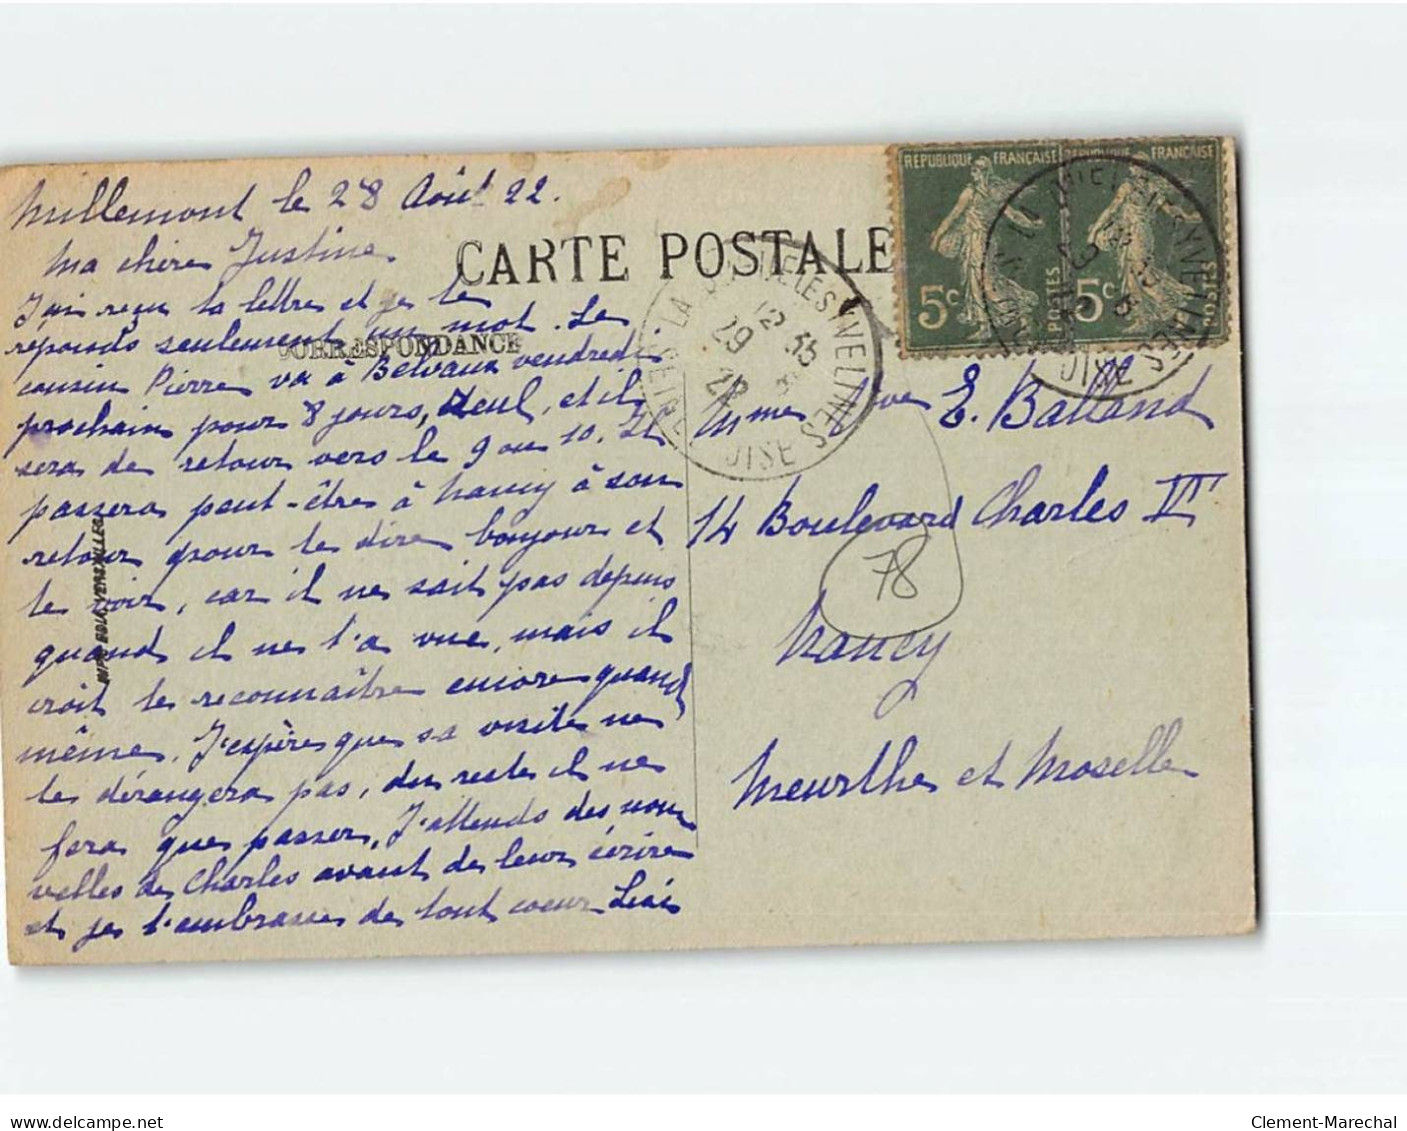 Millemont le 28 Août 22.
Ma chère Justine
J'ai reçu ta lettre et je te
réponds seulement un mot. Le
cousin Pierre va à Belvaux vendredi
prochain pour 8 jours, seul, et il
sera de retour vers le 9 ou 10. Il
passera peut-être à Nancy à son
retour pour te dire bonjour et
te voir, car il ne sait pas depuis
quand il ne t'a vue, mais il
croit te reconnaître encore quand
même. J'espère que sa visite ne
te dérangera pas, du reste il ne
fera que passer, J'attends des nou
velles de Charles avant de leur écrire
et je t'embrasse de tout coeur
CARTE POSTALE
CORRESPONDANCE
IMP. EDIT. VERSAILLES
RÉPUBLIQUE FRANÇAISE
5c
POSTES
RÉPUBLIQUE FRANÇAISE
5c
POSTES
LA QUEUE LES YVELINES
12 35
29
22
SEINE ET OISE
Mme Vve E. Balland
14 Boulevard Charles III
78
Nancy
Meurthe et Moselle
Clement-Marechal